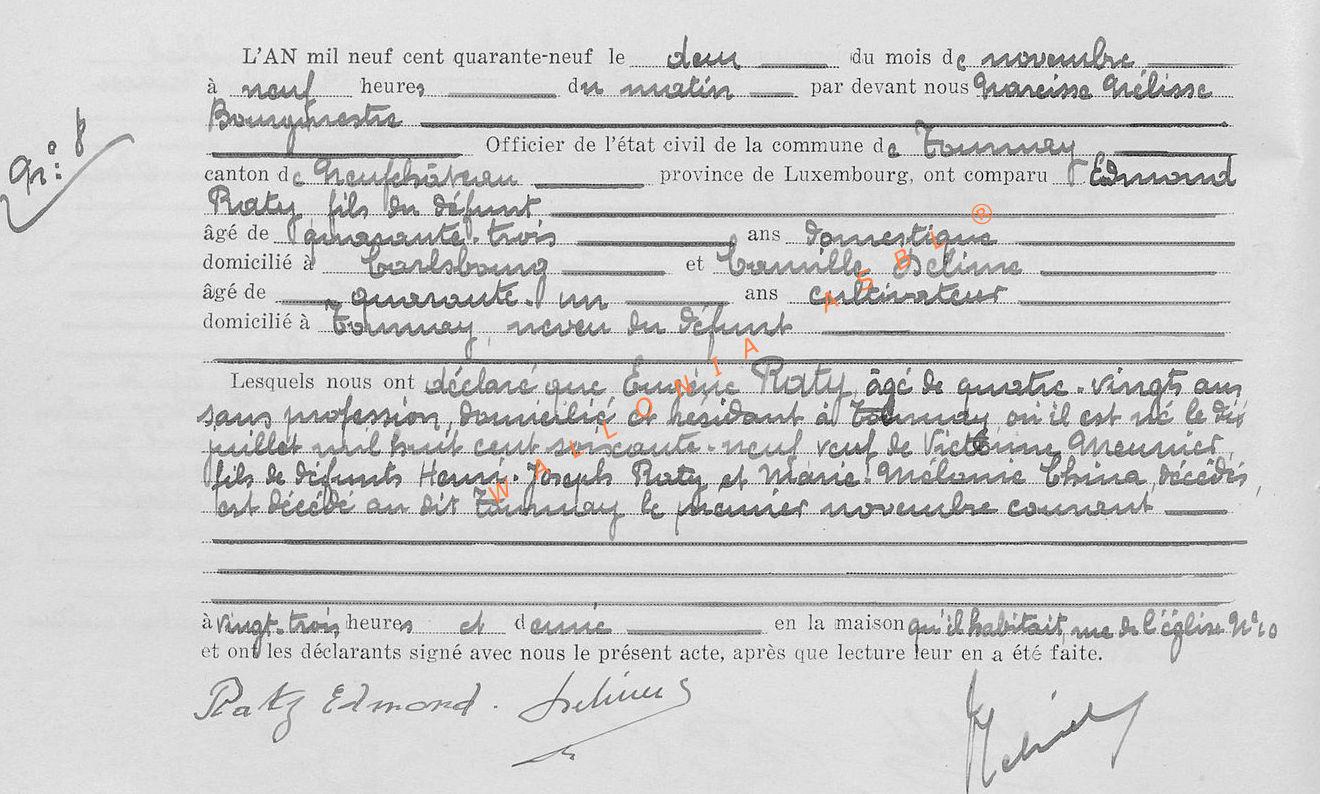 L'AN mil neuf cent quarante-neuf le deux du mois de novembre
à neuf heures du matin par devant nous Narcisse Nélisse
Bourgmestre
Officier de l'état civil de la commune de Tournay
N° 8
canton de Neufchâteau province de Luxembourg, ont comparu Edmond
Raty, fils du défunt
âgé de quarante-trois ans domestique
domicilié à Carlsbourg et Camille
âgé de quarante-un ans cultivateur
domicilié à Tournay, neveu du défunt
Lesquels nous ont déclaré que Eugène Raty, âgé de quatre-vingts ans
sans profession, domicilié et résidant à Tournay où il est né le dix
juillet mil huit cent soixante-neuf veuf de Victorine Meunier,
fils de défunts Henri-Joseph Raty et Marie-Mélanie China, décédés,
est décédé au dit Tournay le premier novembre courant
à vingt-trois heures et demie en la maison qu'il habitait, rue de l'église N° 10
et ont les déclarants signé avec nous le présent acte, après que lecture leur en a été faite.
Raty Edmond.
WALLONIA ASBL ®